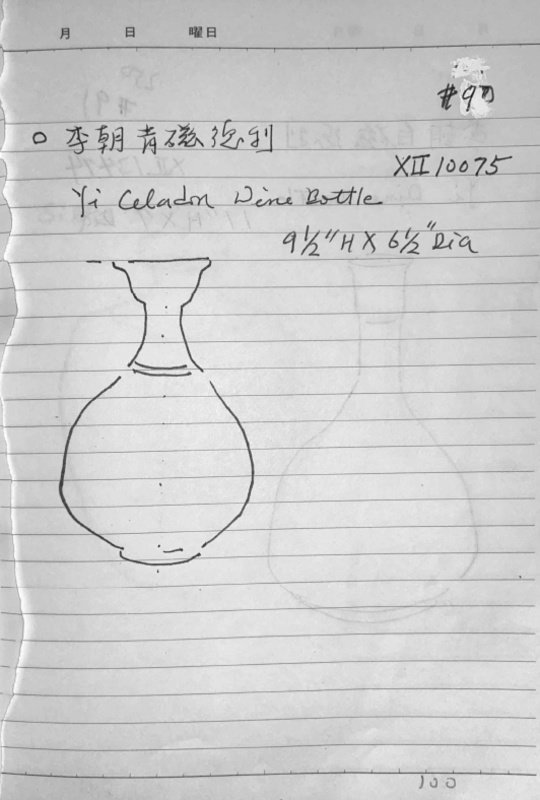 月 日 曜日
○ 李朝青磁徳利
XII 10075
Yi Celadon Wine Bottle
9½"H X 6½"Dia
100